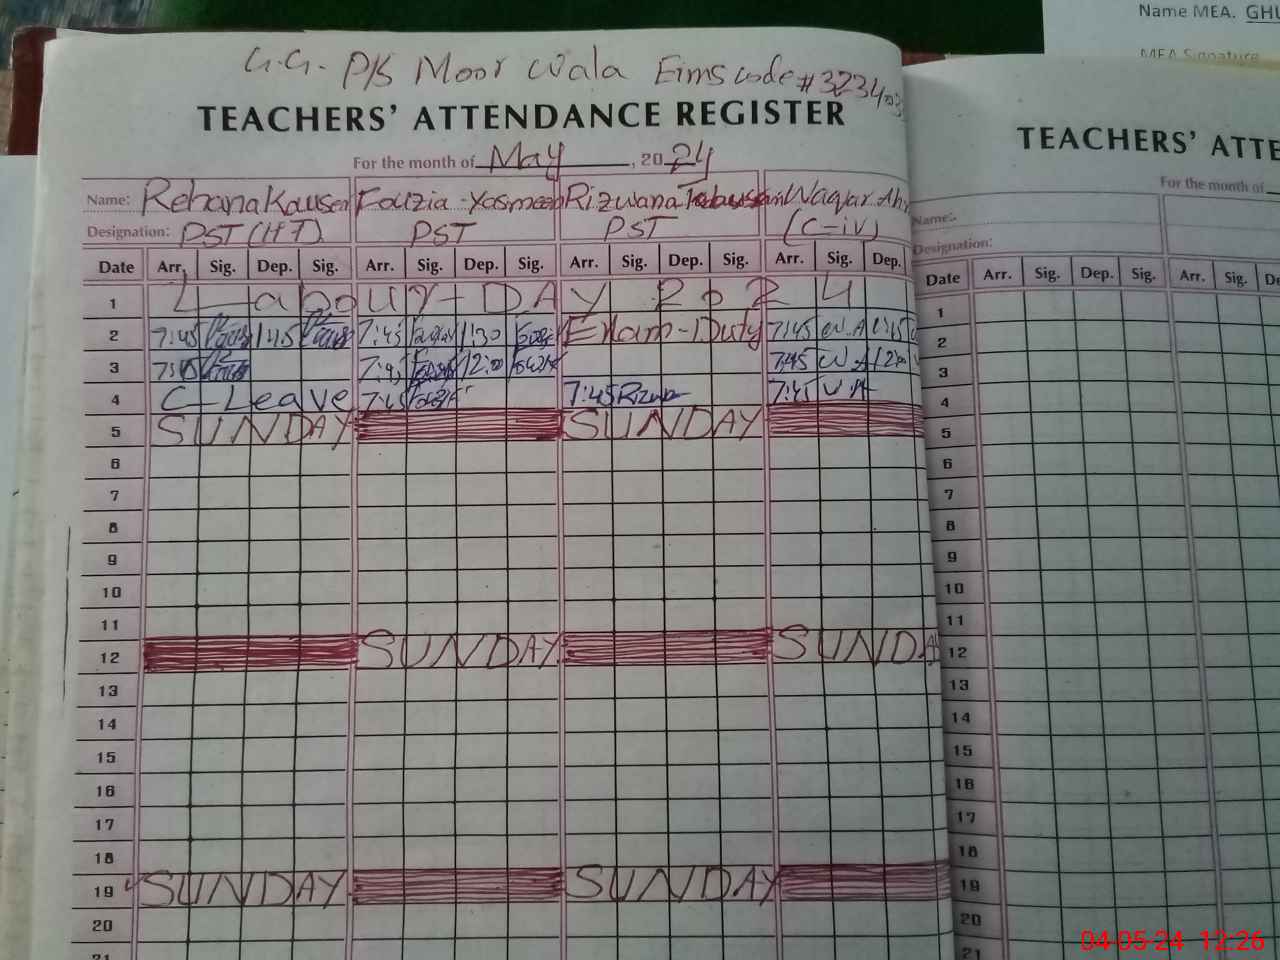 Name MEA. GHU
MEA Signature
G.G. P/S Moor Wala Eims code # 3234
TEACHERS' ATTENDANCE REGISTER
For the month of May, 2024
Name: Rehana Kauser Fouzia Yasmeen Rizwana Tabassum Waqar Ah
Designation: PST (HT) PST PST (C-iv)
Date Arr. Sig. Dep. Sig. Arr. Sig. Dep. Sig. Arr. Sig. Dep. Sig. Arr. Sig. Dep.
1 Labour-DAY 2024
2 7:45 1:45 7:45 1:30 Exam-Duty 7:45 W.A 1:45
3 7:45 12:00 7:45 W.A 12:00
4 C-Leave 7:45 7:45 Rizwa 7:45 W.A
5 SUNDAY SUNDAY
6
7
8
9
10
11
12 SUNDAY SUNDA
13
14
15
16
17
18
19 SUNDAY SUNDAY
20
21
TEACHERS' ATTE
For the month of
Name:
Designation:
Date Arr. Sig. Dep. Sig. Arr. Sig. De
1
2
3
4
5
6
7
8
9
10
11
12
13
14
15
16
17
18
19
20
21
04-05-24 12:26